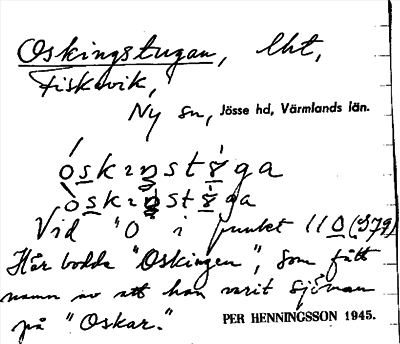 Oskingstugan, lht,
Fiskevik,
Ny sn, Jösse hd, Värmlands län.
Vid "O" i punkt 110 (S79)
Här bodde "Oskingen", som fått
namn av att han varit sjöman
på "Oskar." PER HENNINGSSON 1945.